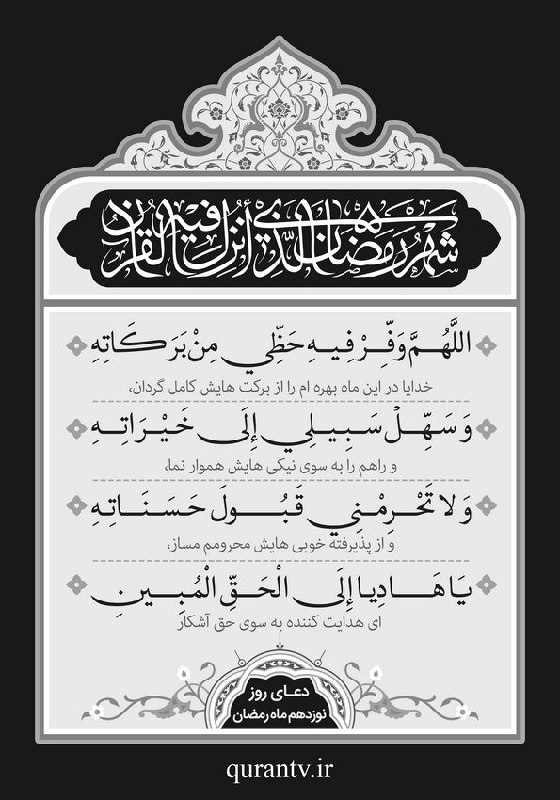 شَهْرُ رَمَضَانَ الَّذِي أُنْزِلَ فِيهِ الْقُرْآنُ
اللَّهُمَّ وَفِّرْ فِيهِ حَظِّي مِنْ بَرَكَاتِهِ
خدایا در این ماه بهره ام را از برکت هایش کامل گردان،
وَ سَهِّلْ سَبِيلِي إِلَى خَيْرَاتِهِ
و راهم را به سوی نیکی هایش هموار نما،
وَ لا تَحْرِمْنِي قَبُولَ حَسَنَاتِهِ
و از پذیرفته خوبی هایش محرومم مساز،
يَا هَادِيا إِلَى الْحَقِّ الْمُبِينِ
ای هدایت کننده به سوی حق آشکار
دعای روز
نوزدهم ماه رمضان
qurantv.ir